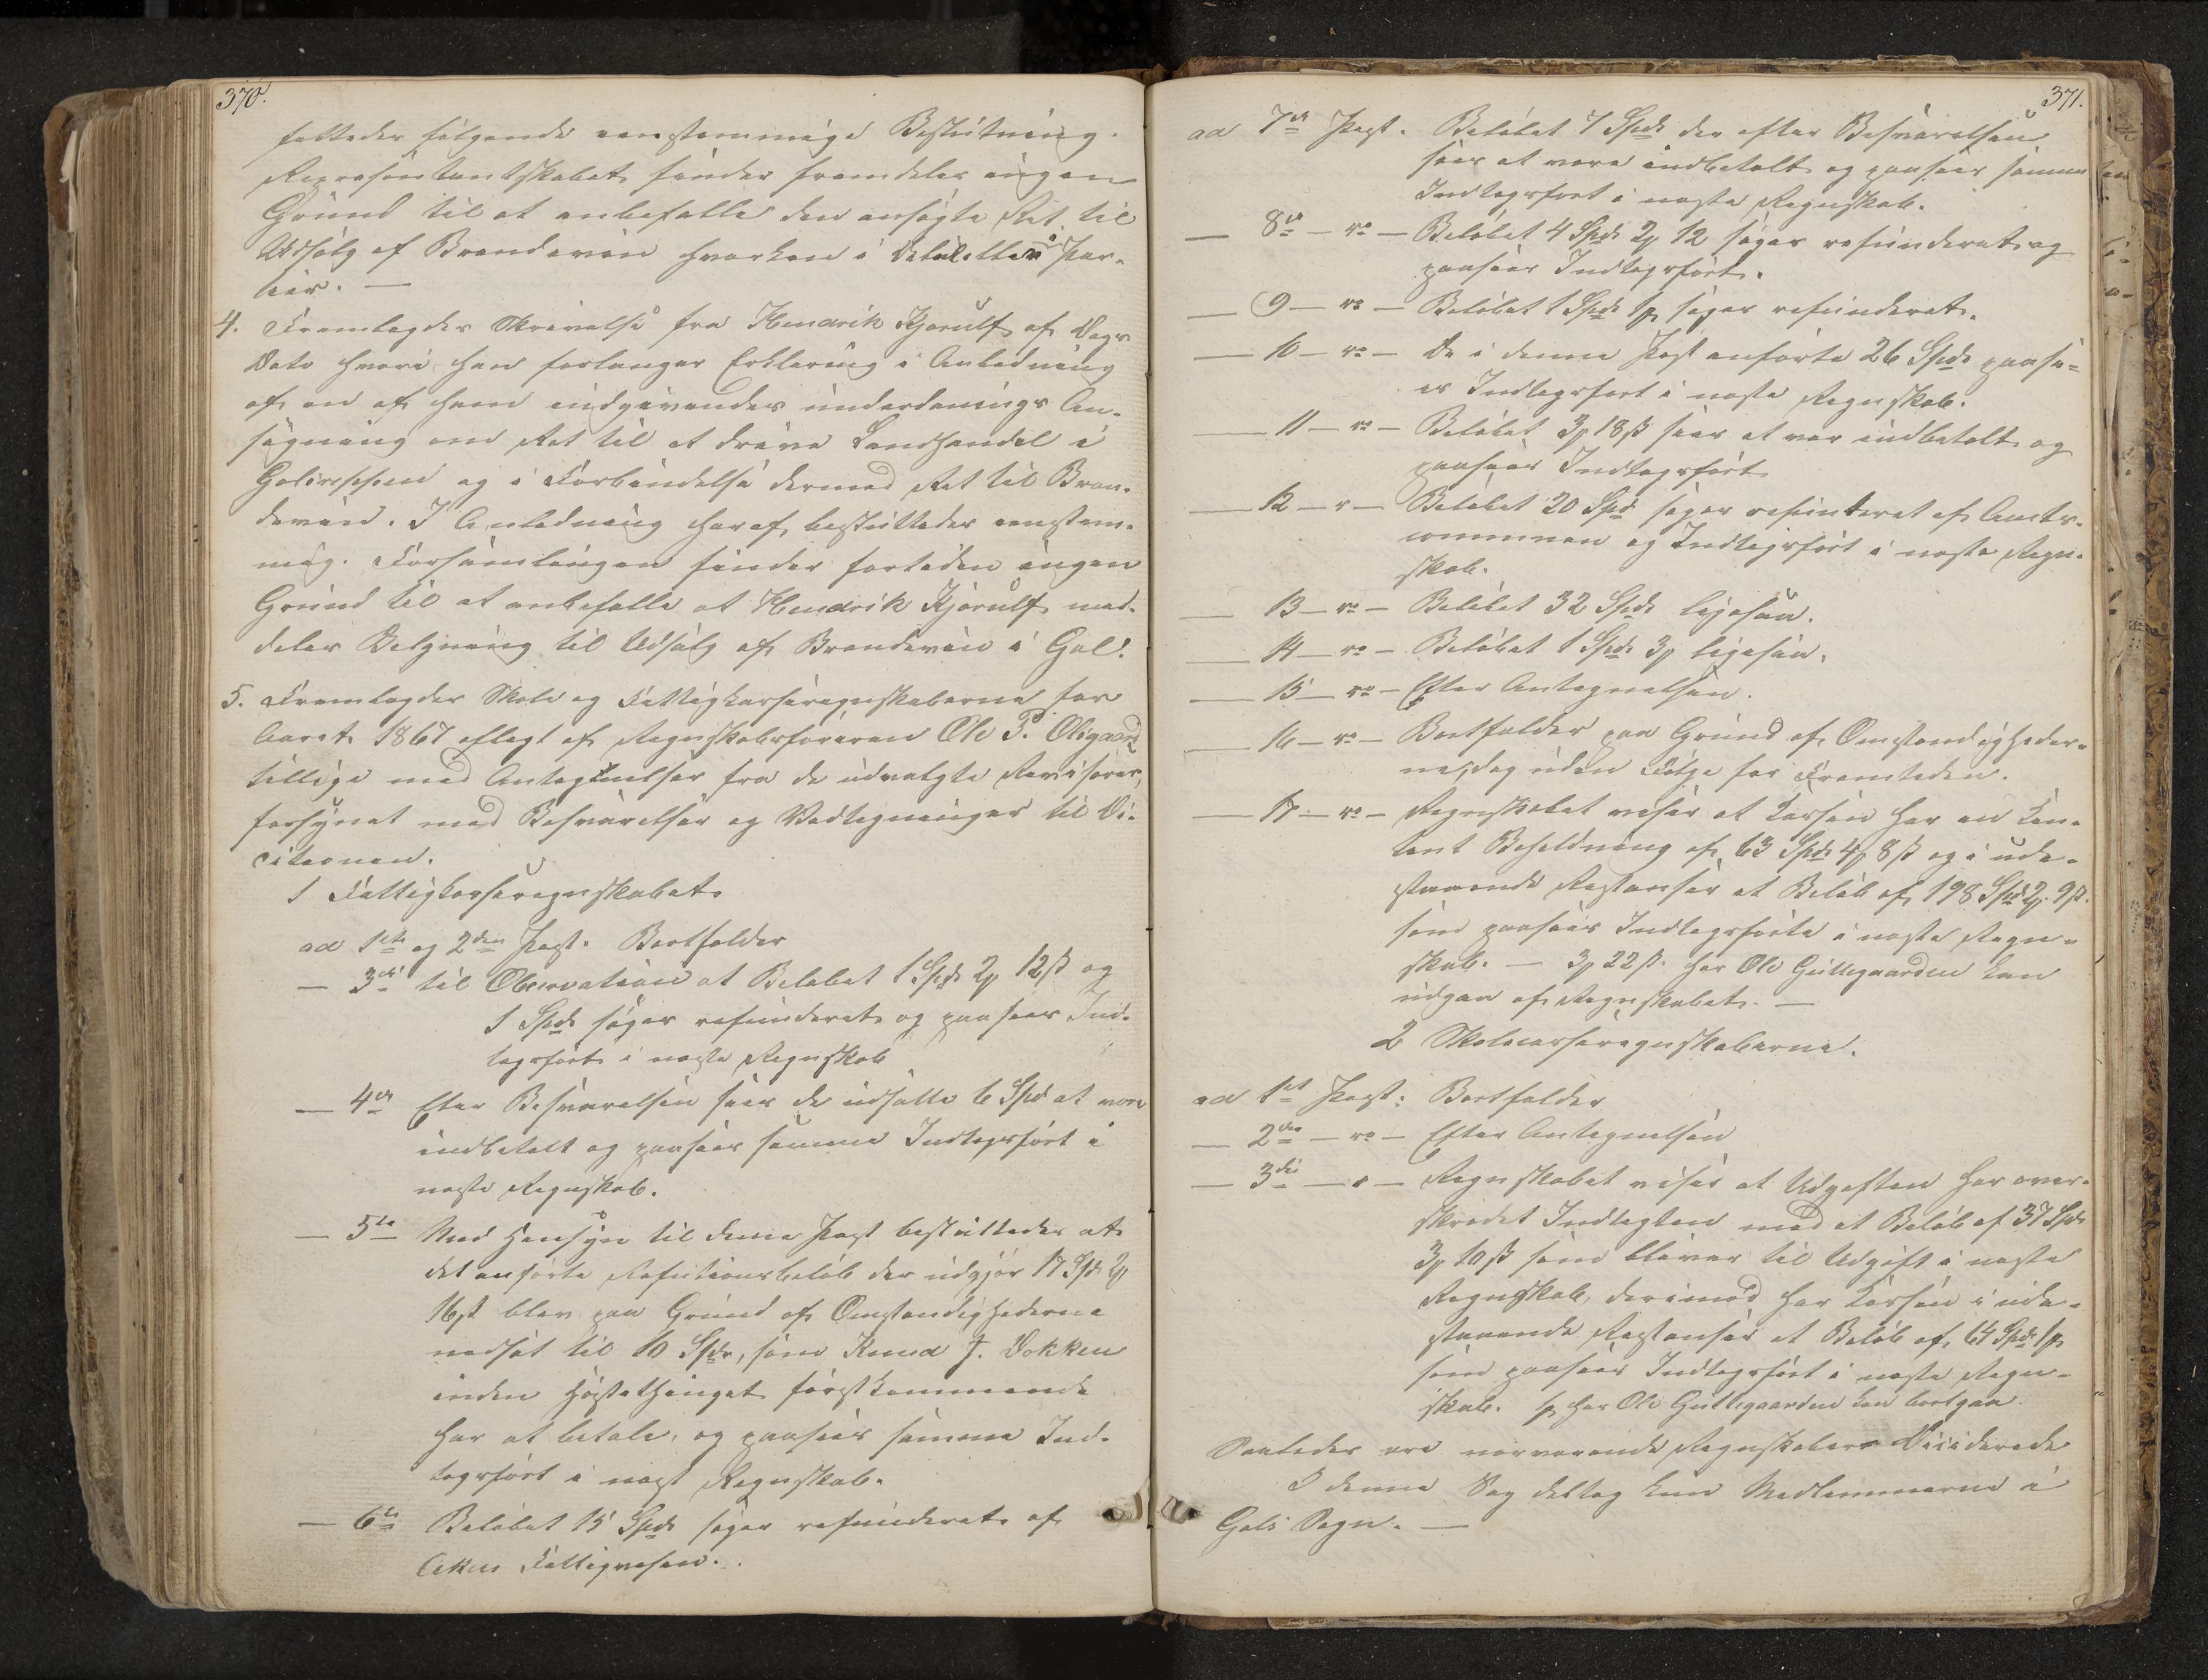 370.
fattedes følgende eenstemmige Beslutning.
Repræsentantskabet finder fremdeles ingen
Grund til at anbefalle den ansøgte Ret til
Udsalg af Brændeviin hverken i Detail eller i Par-
tier. —
4. Fremlagdes Skrivelse fra Hendrik Kjerulf af Dags
Dato hvori han forlanger Erklæring i Anledning
af en af ham indgivendes underdanings An-
søgning om Ret til at drive Landhandel i
Golireppen og i Forbindelse dermed Ret til Bræn-
deviin. I Anledning heraf besluttedes eenstem-
mig. Forsamlingen finder fortiden ingen
Grund til at anbefalle at Hendrik Kjerulf med-
deles Belgning til Udsalg af Brændeviin i Gol.
5. Fremlagdes Skole og Fattigkasseregnskaberne for
Aaret 1867 aflagt af Regnskabsføreren Ole T. Olsgaard
tillige med Antegnelser fra de udvalgte Revisorer,
forsynet med Besvarelser og Vedtegninger til De-
citionen.
1 Fattigkasseregnskabet.
ad 1ste og 2den Post. Bortfalder
— 3die til Observation at Beløbet 1 Spd 2 12 ß og
1 Spd søges refunderet og paasees Ind-
tegsført i næste Regnskab
— 4de Efter Besvarelsen sees de udsatte 6 Spd at være
indbetalt og paasees samme Indtegsført i
næste Regnskab.
— 5te Med Hensyn til denne Post besluttedes at
det anførte Refutionsbeløb der udgjør 17 Spd 2
16 ß blev paa Grund af Omstændighederne
nedsat til 10 Spdr, som Knud J. Dokken
inden Høstethinget førstkommende
har at betale, og paasees samme Ind-
tegsført i næst Regnskab.
— 6te Beløbet 15 Spd søges refunderet af
Fattigvæsen.
371.
ad 7de Post. Beløbet 7 Spd der efter Besvarelsen
sees at være indbetalt og paasees samme
Indtegsført i næste Regnskab.
— 8de — ro — Beløbet 4 Spd 2 12 søges refunderet og
paasees Indtegsført.
— 9 — ro — Beløbet 1 Spd 1 søges refunderet.
— 10 — ro — De i denne Post anførte 26 Spd paase-
es Indtegsført i næste Regnskab.
— 11 — ro — Beløbet 3 18 ß sees at var indbetalt og
paasees Indtegsført
— 12 — r — Beløbet 20 Spd søges refunderet af Amts-
communen og Indtegsført i næste Regn-
skab.
— 13 — ro — Beløbet 32 Spd ligesaa.
— 14 — ro — Beløbet 1 Spd 3 ligesaa.
— 15 — ro — Efter Antegnelsen.
— 16 — ro — Bortfalder paa Grund af Omstændigheder-
ne, dog uden Følge for Fremtiden.
— 17 — ro — Regnskabet viser at Kassen har en Kon-
tant Beholdning af 63 Spd 4 8 ß og i ude-
staaende Restanser et Beløb af 198 Spd 2 9 ß.
som paasees Indtegsførte i næste Regn-
skab. — 3 22 ß. hos Ole Gullegaarden kan
udgaa af Regnskabet. —
2 Skolecasseregnskaberne.
ad 1st Post. Bortfalder
— 2den — ro — Efter Antegnelsen
— 3die — r — Regnskabet viser at Udgiften har over-
skredet Indtegten med et Beløb af 37 Spd
3 10 ß som bliver til Udgift i næste
Regnskab, derimod har Kassen i ude-
staaende Restanser et Beløb af 64 Spd 1
som paasees Indtegsført i næste Regn-
skab. hos Ole Gullegaarden kan bortgaa.
Saaledes ere nærværende Regnskaber Deciderede
I denne Sag deltog kun Medlemmerne i
Gols Sogn. —